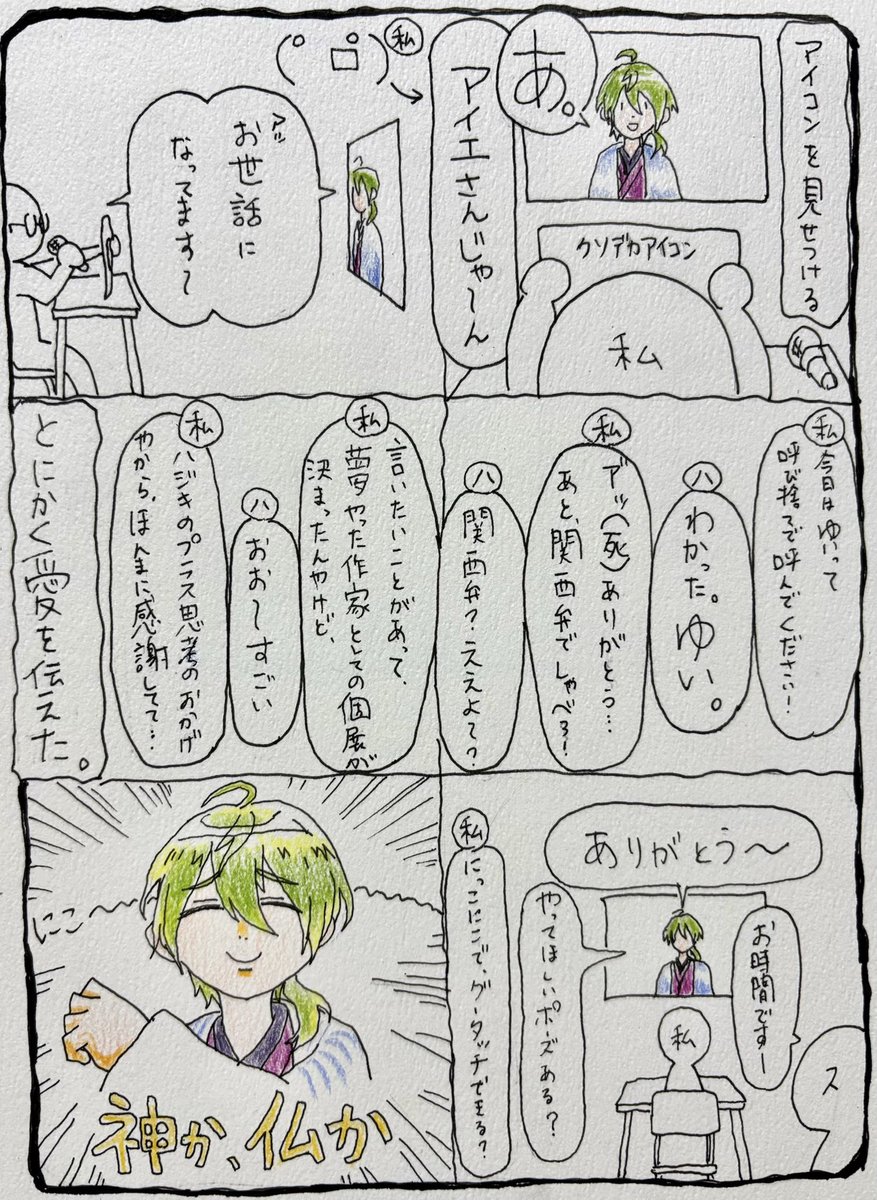 アイコンを見せつける
あ。
クソデカアイコン
私
アイエさんじゃ〜ん
私
アッ
お世話に
なってます〜
私
今日はゆいって
呼び捨てで呼んでください!
ハ
わかった。ゆい。
私
アッ(死)ありがとう…
あと、関西弁でしゃべろ!
ハ
関西弁?ええよて?
私
言いたいことがあって、
夢やった作家としての個展が
決まったんやけど、
ハ
おお〜すごい
私
ハジキのプラス思考のおかげ
やから、ほんまに感謝してて…
とにかく愛を伝えた。
ありがとう〜
お時間ですー
ス
私
やってほしいポーズある?
私
にっこにこで、グータッチできる?
にこ〜
神か、仏か